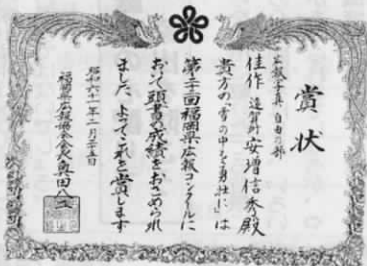 賞状
広報写真 自由の部
佳作 遠賀町 安増信秀殿
貴方の「雪の中を勇壮に」は
第二十一回福岡県広報コンクールに
おいて頭書の成績をおさめられ
ました よってこれを賞します
昭和六十一年二月二十五日
福岡県広報協会会長 奥田八二